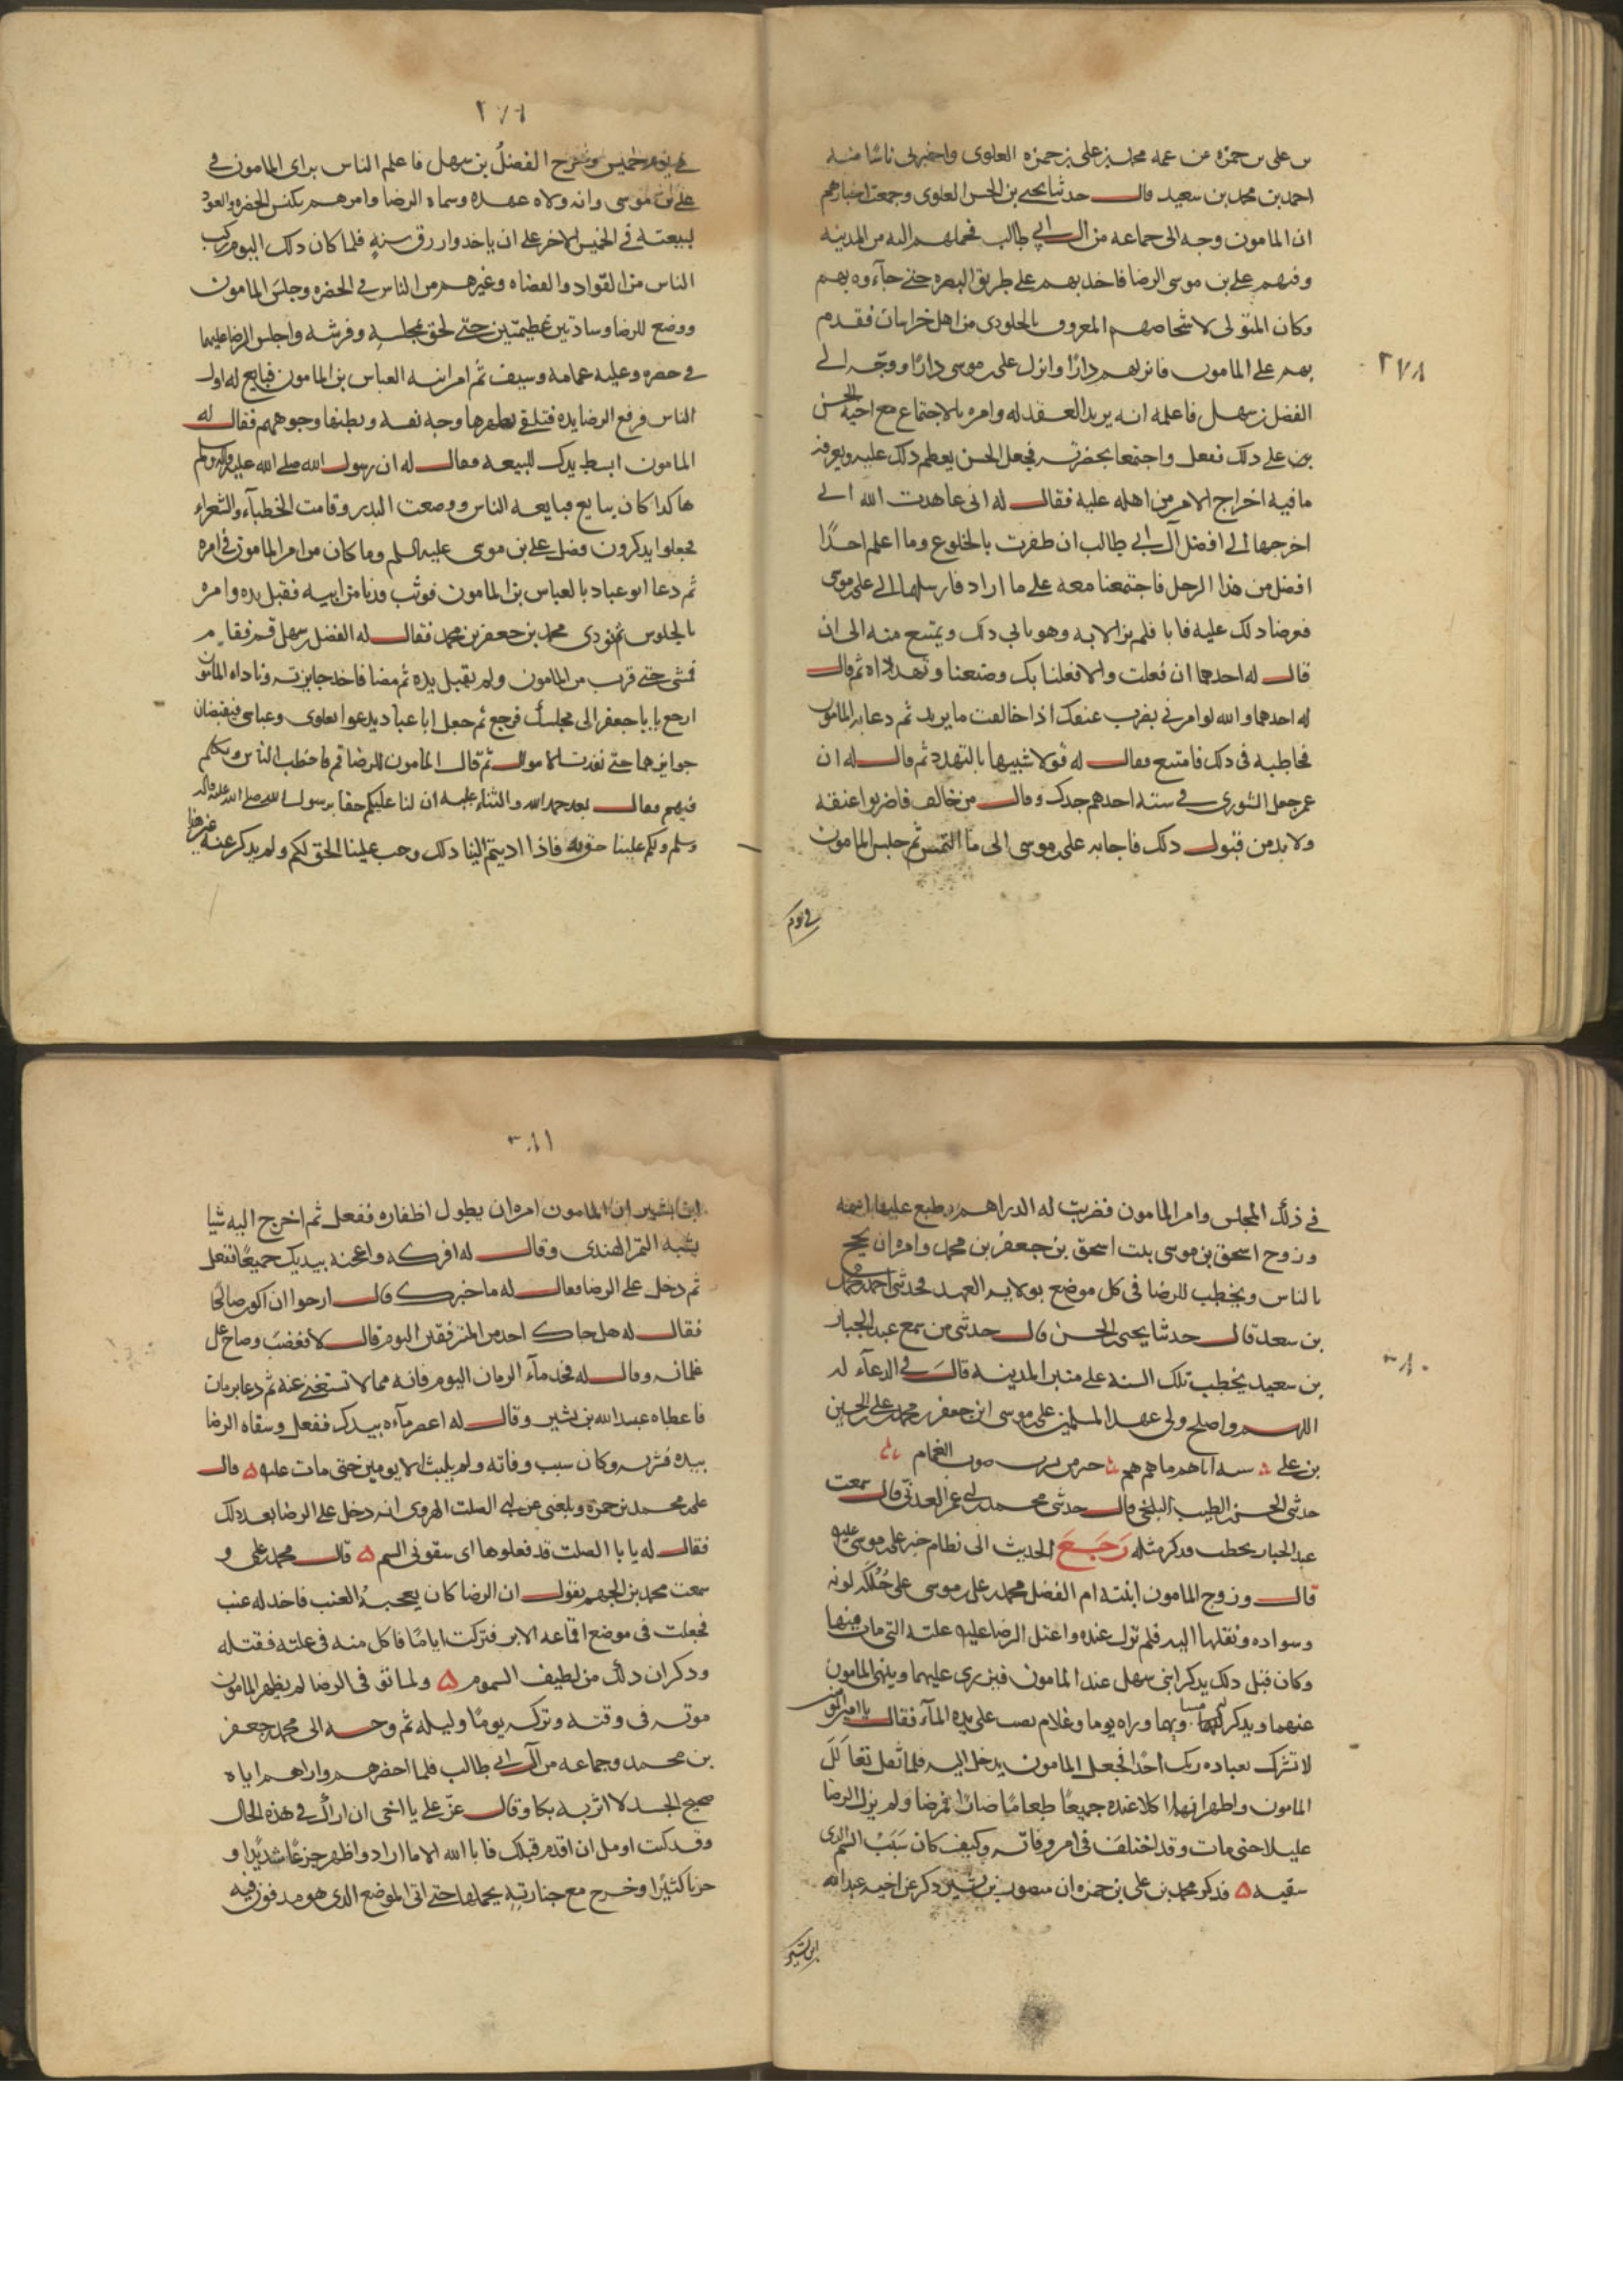 بن على بن حمزه عن عمه محمد بن على بن حمزه العلوى واخبرنى باشيا منه
احمد بن محمد بن سعيد قال حدثنا يحيى بن الحسن العلوى وجمعت اخبارهم
ان المامون وجه الى جماعه من ال ابى طالب فحملهم اليه من المدينه
وفيهم على بن موسى الرضا فاخذ بهم على طريق البصره حتى جاءوه بهم
وكان المتولى لاشخاصهم المعروف بالجلودى من اهل خراسان فقدم
بهم على المامون فانزلهم دارًا وانزل على بن موسى دارًا ووجّه الى
الفضل بن سهل فاعلمه انه يريد العقد له وامره بالاجتماع مع اخيه الحسن
بن على ذلك ففعل واجتمعا بحضرته فجعل الحسن يعظم ذلك عليه ويعرفه
ما فيه اخراج الامر من اهله عليه فقال له انى عاهدت الله الى
اخرجها الى افضل آل ابى طالب ان ظفرت بالمخلوع وما اعلم احدًا
افضل من هذا الرجل فاجتمعنا معه على ما اراد فارسلهما الى على بن موسى
فعرضا ذلك عليه فابا فلم يزالا به وهو يابى ذلك ويمتنع منه الى ان
قال له احدهما ان فعلت والا فعلنا بك وصنعنا وتهدداه ثم قال
له احدهما والله لو امرنى بضرب عنقك اذا خالفت ما يريد ثم دعا به المامون
فخاطبه فى ذلك فامتنع فقال له قولا شبيها بالتهدد ثم قال له ان
عمر جعل الشورى فى سته احدهم جدك وقال من خالف فاضربوا عنقه
ولا بد من قبول ذلك فاجابه على بن موسى الى ما التمس ثم جلس المامون
فى يوم
٢٧٨
فى يوم خميس وخرج الفضل بن سهل فاعلم الناس براى المامون فى
على بن موسى وانه ولاه عهده وسماه الرضا وامرهم بلبس الخضره والعود
لبيعته فى الخميس الاخر على ان ياخذوا رزق سنةٍ فلما كان ذلك اليوم ركب
الناس من القواد والقضاه وغيرهم من الناس فى الخضره وجلس المامون
ووضع للرضا وسادتين عظيمتين حتى لحق بمجلسه وفرشه واجلس الرضا عليهما
فى خضره وعليه عمامه وسيف ثم امر ابنه العباس بن المامون فبايع له اول
الناس فرفع الرضا يده فتلقى بظهرها وجه نفسه وببطنها وجوههم فقال له
المامون ابسط يدك للبيعه فقال له ان رسول الله صلى الله عليه واله وسلم
هاكذا كان يبايع فبايعه الناس ووضعت البدر وقامت الخطباء والشعراء
فجعلوا يذكرون فضل على بن موسى عليه السلم وما كان من امر المامون فى امره
ثم دعا ابو عباد بالعباس بن المامون فوثب فدنا من ابيه فقبل يده وامره
بالجلوس ثم نودى محمد بن جعفر بن محمد فقال له الفضل بن سهل قم فقام
فمشى حتى قرب من المامون ولم يقبل يده ثم مضا فاخذ جايزته وناداه المامون
ارجع يا با جعفر الى مجلسك فرجع ثم جعل ابا عباد يدعوا بعلوى وعباسى فيقبضان
جوايزهما حتى نفدت الاموال ثم قال المامون للرضا قم فاخطب الناس وتكلم
فيهم فقال بعد حمد الله والثناء عليه ان لنا عليكم حقا برسول الله صلى الله عليه واله
وسلم ولكم علينا حق به فاذا اديتم الينا ذلك وجب علينا الحق لكم ولم يذكر عنه غير هذا
فى ذلك المجلس وامر المامون فضربت له الدراهم وطبع عليها اسمه
وزوج اسحق بن موسى بنت اسحق بن جعفر بن محمد وامره ان يحج
بالناس ويخطب للرضا فى كل موضع بولاية العهد فحدثنى احمد بن محمد
بن سعد قال حدثنا يحيى بن الحسن قال حدثنى من سمع عبد الجبار
بن سعيد يخطب تلك السنه على منبر المدينه قال فى الدعاء له
اللهم واصلح ولى عهد المسلمين على بن موسى ابن جعفر بن محمد بن على بن الحسين
بن على سته اباهم ما هم هم من يشرب صوب الغمام
حدثنى الحسن بن الطيب البلخى قال حدثنى محمد بن ابى عمر العدنى قال سمعت
عبد الجبار يخطب فذكر مثله رَجَعَ الحديث الى نظام خبر على بن موسى عليه
قال وزوج المامون ابنته ام الفضل محمد بن على بن موسى على حُلكة لونه
وسواده ونقلها اليه فلم تزل عنده واعتل الرضا عليه علته التى مات فيها
وكان قبل ذلك يذكر ابنى سهل عند المامون فيزرى عليهما وينهى المامون
عنهما ويذكر له مساويهما وراه يوما وغلام يصب على يده الماء فقال يا امير المومنين
لا تشرك بعباده ربك احدًا فجعل المامون يدخل اليه فلما ثقل تعالل
المامون واظهر انهما اكلا عنده جميعًا طعامًا ضارًا فمرضا ولم يزل الرضا
عليلا حتى مات وقد اختلف فى امر وفاته وكيف كان سَبَب السم الذى
سقيه ه فذكر محمد بن على بن حمزه ان منصور بن بشير ذكر عن اخيه عبد الله
ابن بشير
ابن بشير ان المامون امره ان يطول اظفاره ففعل ثم اخرج اليه شيا
يشبه التمر الهندى وقال له افركه واعجنه بيديك جميعًا ففعل
ثم دخل على الرضا فقال له ما خبرك قال ارجوا ان اكون صالحًا
فقال له هل جاك احد من المترفقين اليوم قال لا فغضب وصاح على
غلمانه وقال له فخذ ماء الرمان اليوم فانه مما لا تستغنى عنه ثم دعا برمان
فاعطاه عبد الله بن بشير وقال له اعصر ماءه بيدك ففعل وسقاه الرضا
بيده فشربه وكان سبب وفاته ولم يلبث الا يومين حتى مات عليه ه قال
على محمد بن حمزه وبلغنى عن ابى الصلت الهروى انه دخل على الرضا بعد ذلك
فقال له يا با الصلت قد فعلوها اى سقونى السم ه قال محمد بن على و
سمعت محمد بن الجهم يقول ان الرضا كان يعجبه العنب فاخذ له عنب
فجعلت فى موضع اقماعه الابر فتركت ايامًا فاكل منه فى علته فقتله
وذكر ان ذلك من لطيف السموم ه ولما توفى الرضا لم يظهر المامون
موته فى وقته وتركه يومًا وليله ثم وجه الى محمد بن جعفر
بن محمد وجماعه من آل ابى طالب فلما احضرهم واراهم اياه
صحيح الجسد لا اثر به بكا وقال عزّ على يا اخى ان اراك فى هذه الحال
وقد كنت اومل ان اقدم قبلك فابا الله الا ما اراد واظهر جزعًا شديدًا و
حزنا كثيرًا وخرج مع جنازته يحملها حتى اتى الموضع الذى هو مدفون فيه